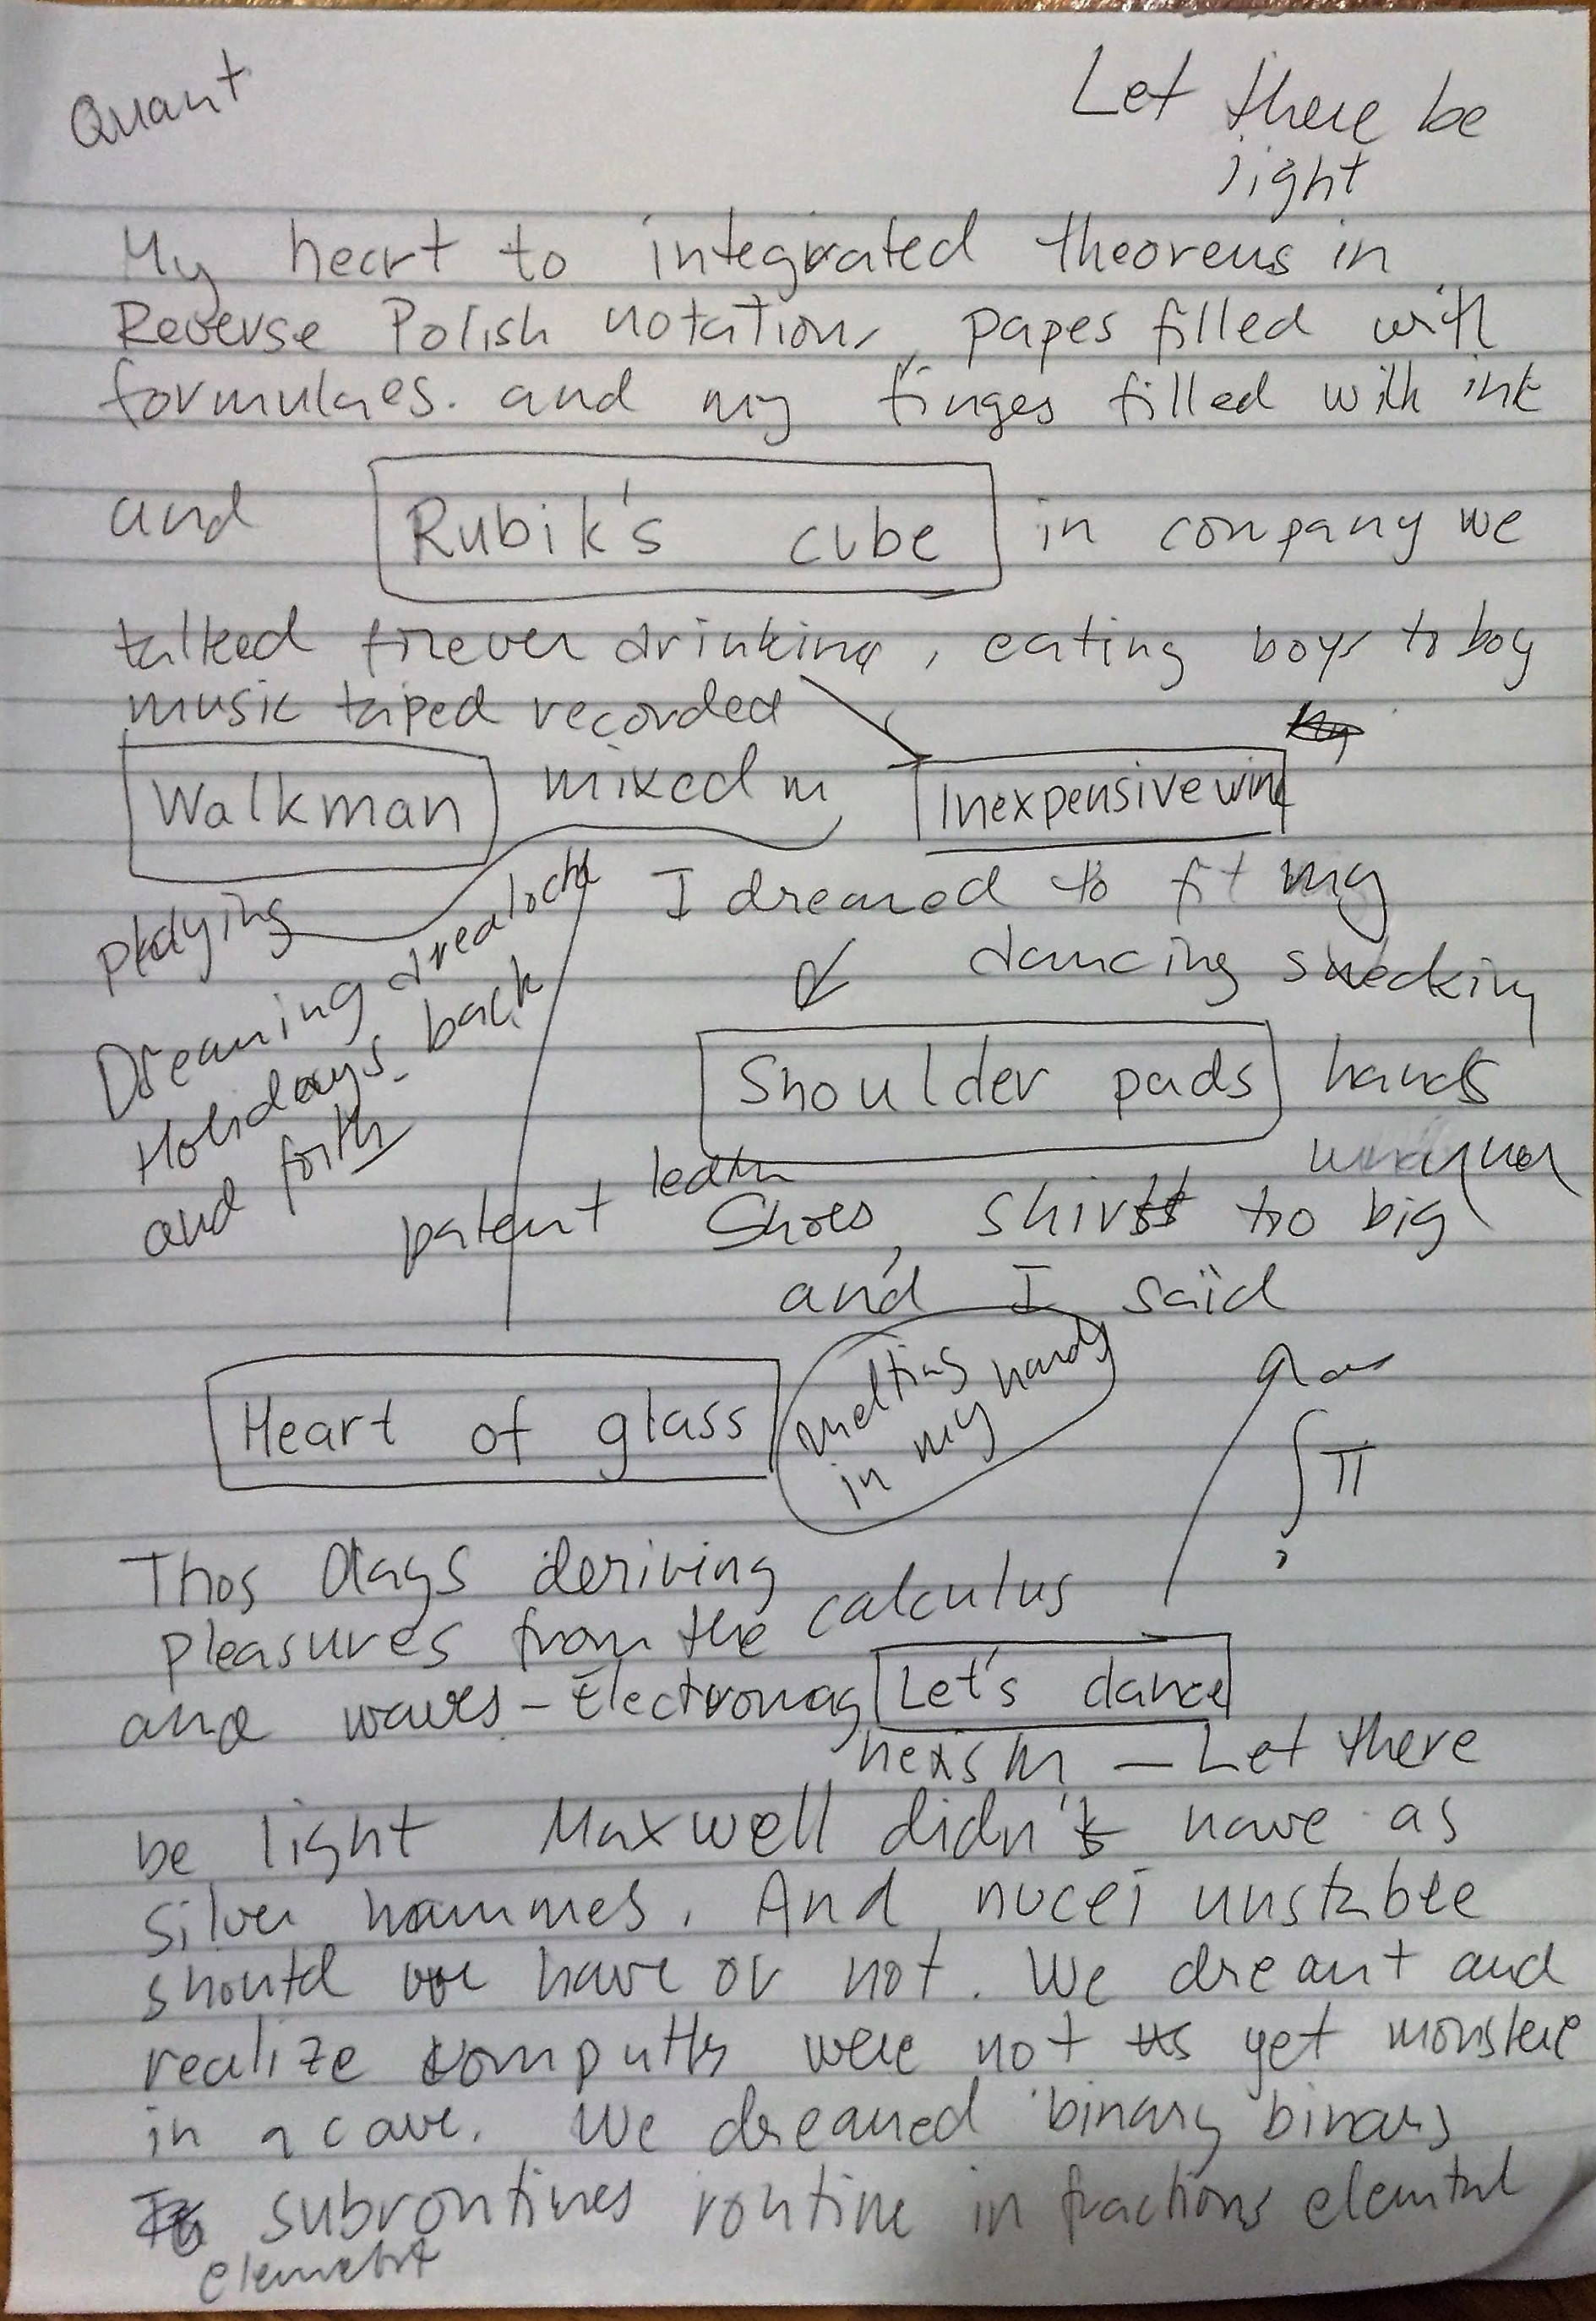 Quant
Let there be
light
My heart to integrated theorems in
Reverse Polish notation, papes filled with
formulaes. and my finges filled with ink
and Rubik's cube in company we
talked forever drinking, eating boys to boy
music taped recorded
Walkman mixed in Inexpensive wine
playing
Dreaming
Holidays back
and forth
I dreamed to fit my
dancing
Shoulder pads hands
patent leath
shoes, shirts too big
and I said
Heart of glass melting
in my hands
∫π
Thos days deriving
pleasures from the calculus
and waves - Electromag Let's dance
neism — Let there
be light Maxwell didn't have as
silver hammes. And nucei unstable
should we have or not. We dreamt and
realize were not yet monstere
in a cave. We dreamed binary binary
subroutines routine in fractions